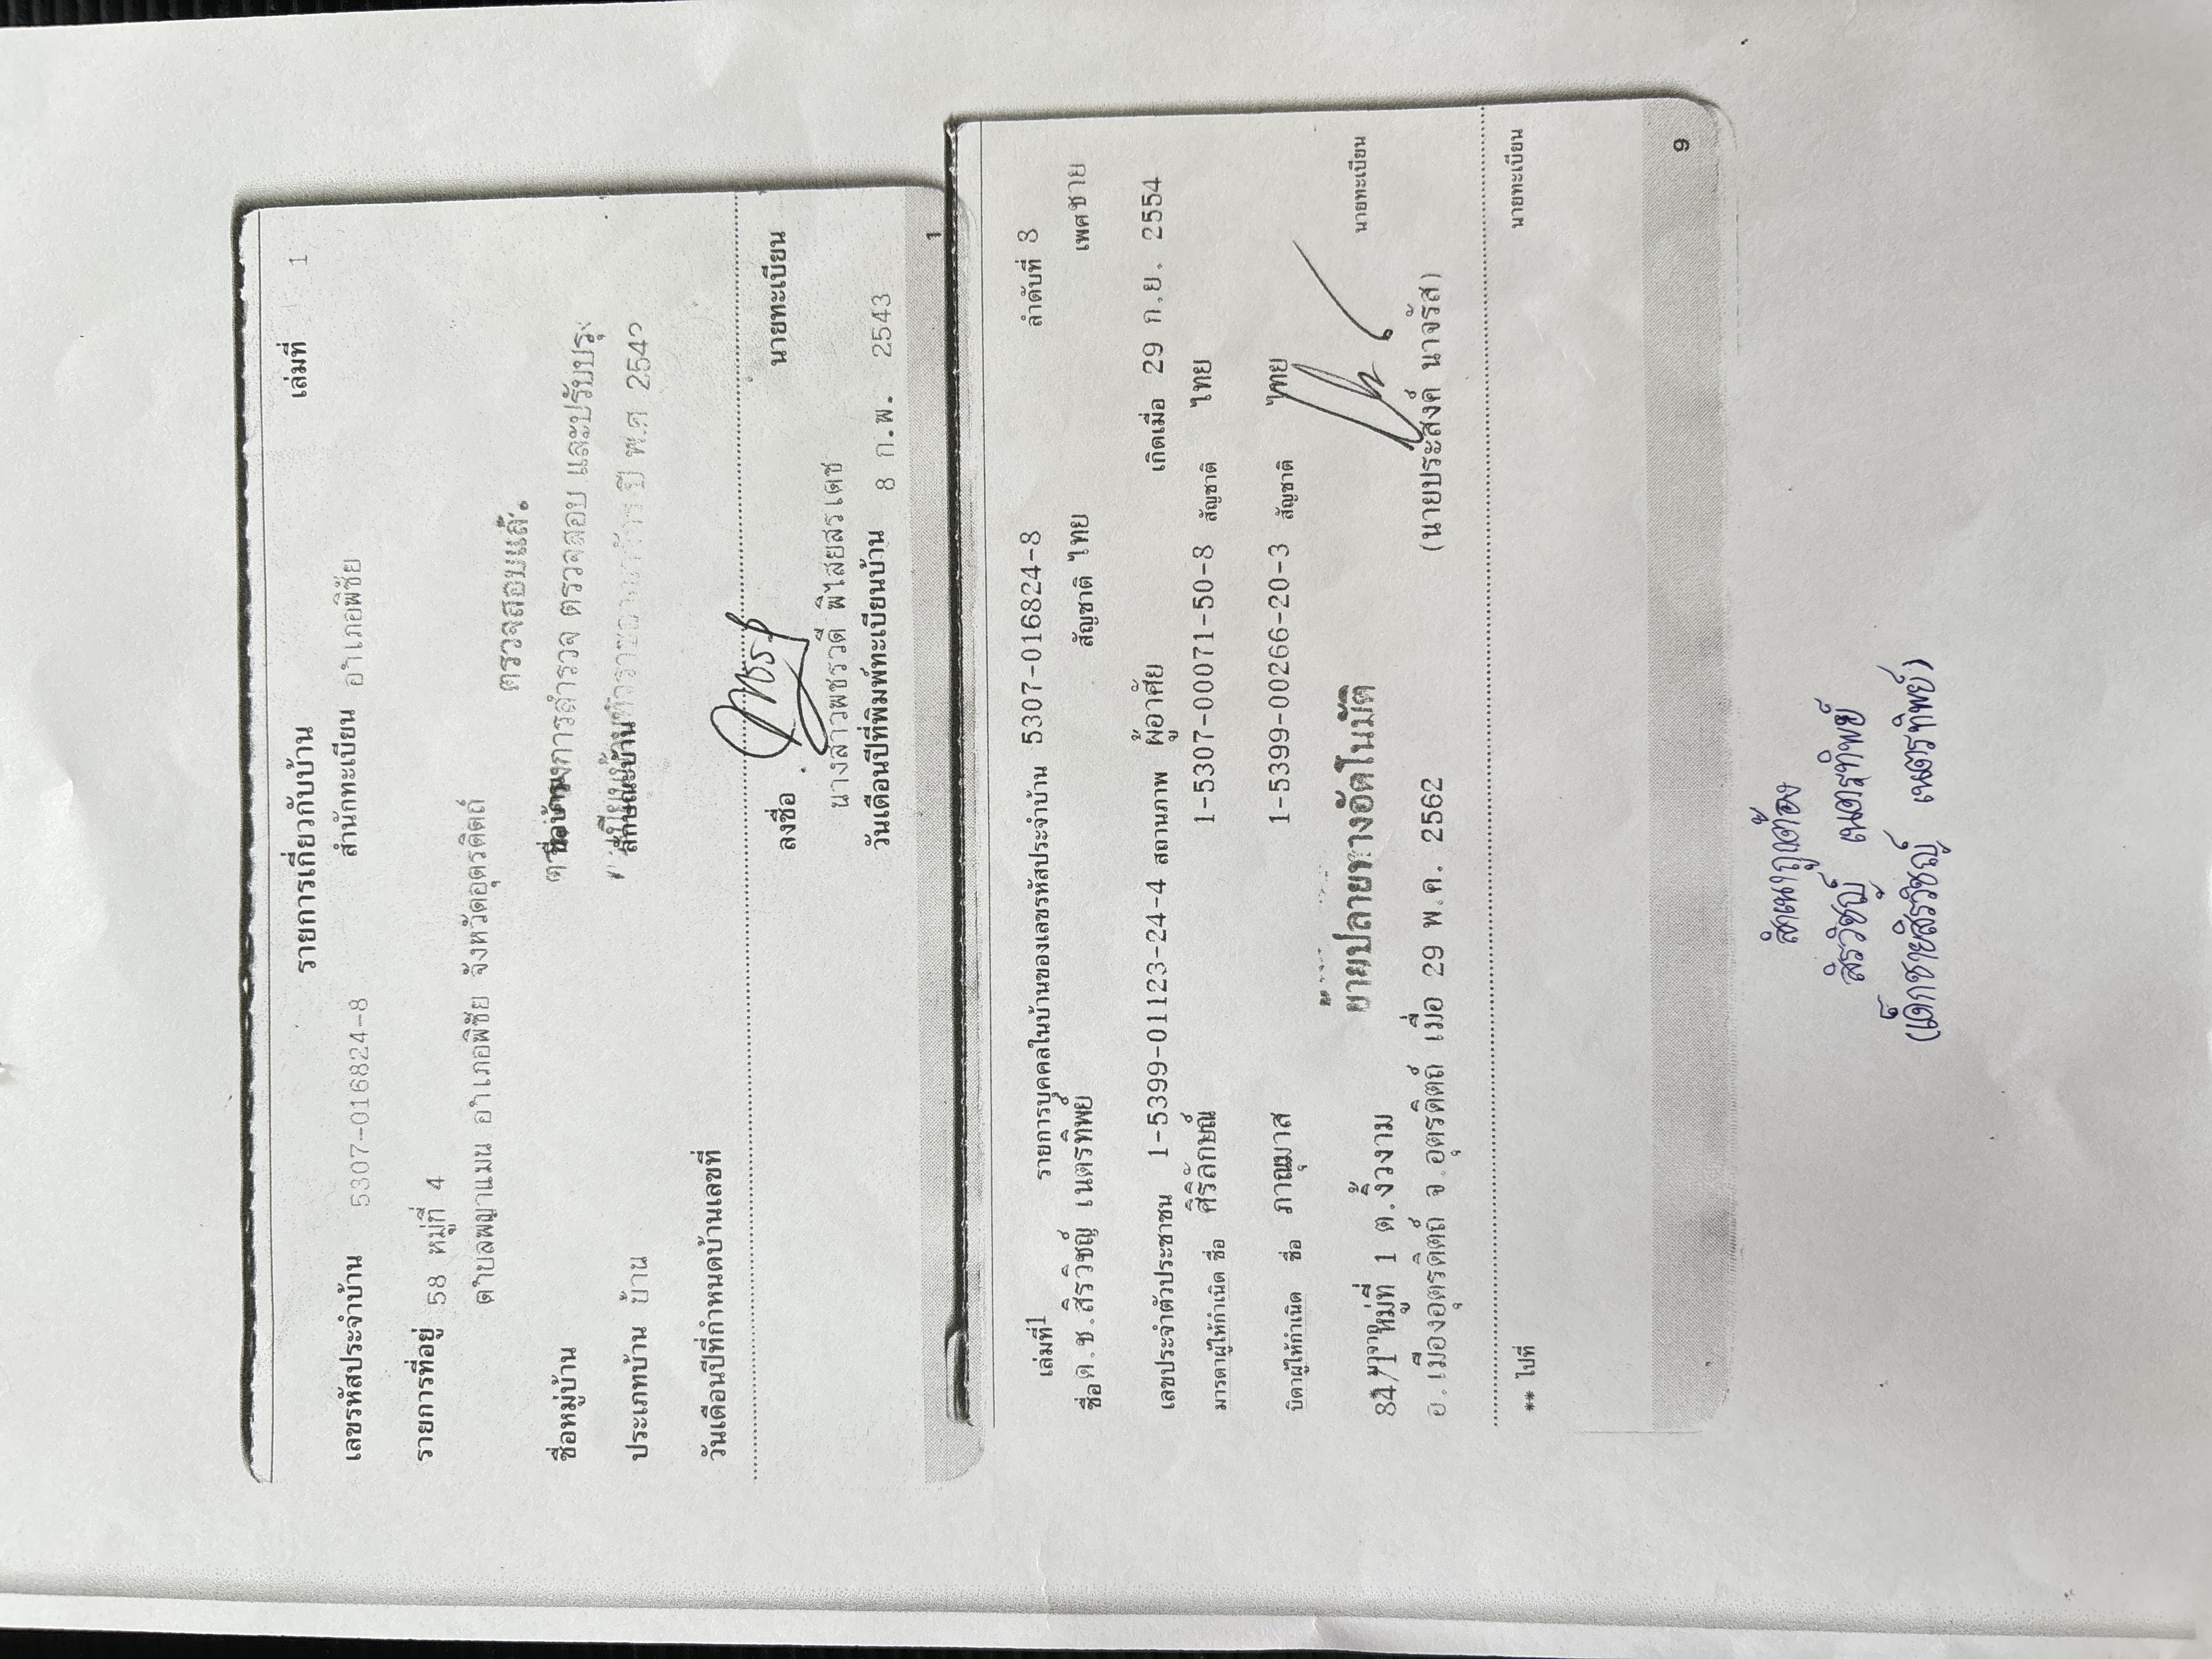 รายการเกี่ยวกับบ้าน เล่มที่ 1
เลขรหัสประจำบ้าน 5307-016824-8 สำนักทะเบียน อำเภอพิชัย
รายการที่อยู่ 58 หมู่ที่ 4
ตำบลพญาแมน อำเภอพิชัย จังหวัดอุตรดิตถ์
ตรวจสอบแล้ว
ชื่อหมู่บ้าน ชื่อบ้าน การสำรวจ ตรวจสอบ และปรับปรุง
ประเภทบ้าน บ้าน ลักษณะบ้าน ปี พ.ศ 254
วันเดือนปีที่กำหนดบ้านเลขที่
ลงชื่อ นายทะเบียน
นางสาวพชรวดี พิไสยสรเดช
วันเดือนปีที่พิมพ์ทะเบียนบ้าน 8 ก.พ. 2543
1
เล่มที่ 1 รายการบุคคลในบ้านของเลขรหัสประจำบ้าน 5307-016824-8 ลำดับที่ 8
ชื่อ ด.ช.สิรวิชญ์ เนตรทิพย์ สัญชาติ ไทย เพศ ชาย
เลขประจำตัวประชาชน 1-5399-01123-24-4 สถานภาพ ผู้อาศัย เกิดเมื่อ 29 ก.ย. 2554
มารดาผู้ให้กำเนิด ชื่อ ศิริลักษณ์ 1-5307-00071-50-8 สัญชาติ ไทย
บิดาผู้ให้กำเนิด ชื่อ ภาณุมาส 1-5399-00266-20-3 สัญชาติ ไทย
ย้ายปลายทางอัตโนมัติ
84/1 หมู่ที่ 1 ต.งิ้วงาม นายทะเบียน
อ.เมืองอุตรดิตถ์ จ.อุตรดิตถ์ เมื่อ 29 พ.ค. 2562 (นายประสงค์ นาจรัส)
** ไปที่ นายทะเบียน
9
สำเนาถูกต้อง
สิรวิชญ์ เนตรทิพย์
(เด็กชายสิรวิชญ์ เนตรทิพย์)